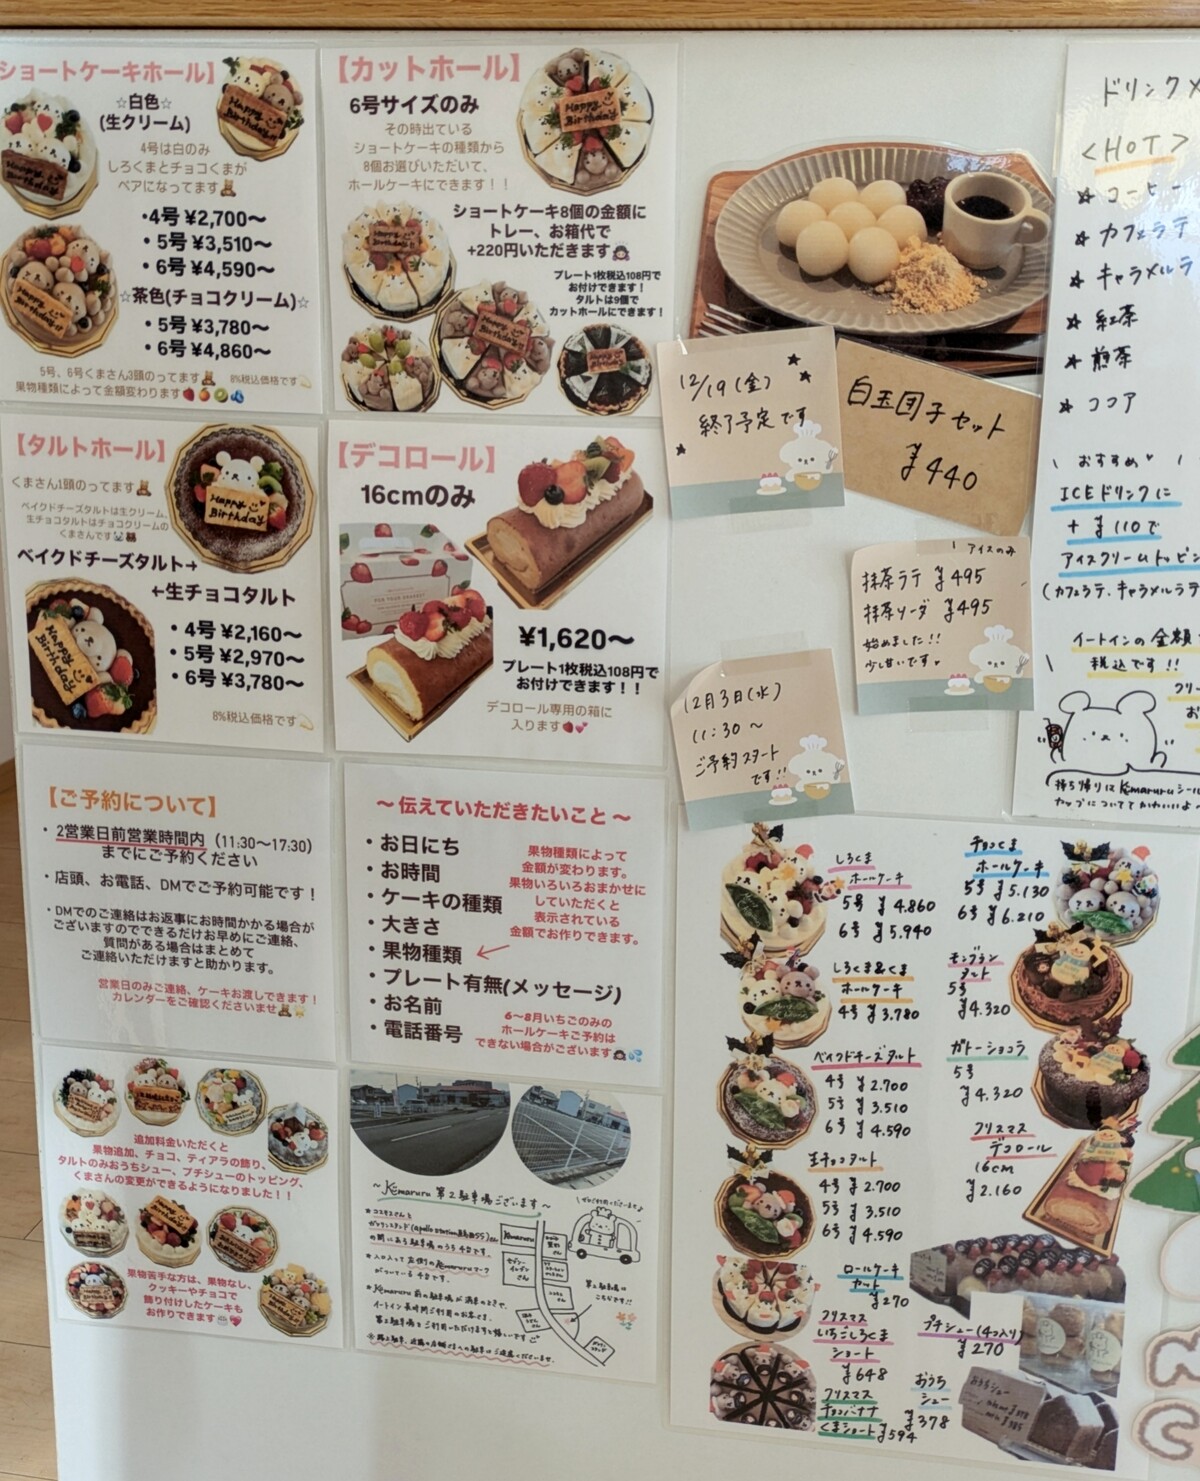 【ショートケーキホール】
☆白色☆
(生クリーム)
4号は白のみ
しろくまとチョコくまが
ペアになってます
・4号 ¥2,700〜
・5号 ¥3,510〜
・6号 ¥4,590〜
☆茶色(チョコクリーム)☆
・5号 ¥3,780〜
・6号 ¥4,860〜
5号、6号くまさん3頭のってます
果物種類によって金額変わります
8%税込価格です
【カットホール】
6号サイズのみ
その時出ている
ショートケーキの種類から
8個お選びいただいて、
ホールケーキにできます！！
ショートケーキ8個の金額に
トレー、お箱代で
+220円いただきます
プレート1枚税込108円で
お付けできます！
タルトは9個で
カットホールにできます！
【タルトホール】
くまさん1頭のってます
ベイクドチーズタルトは生クリーム、
生チョコタルトはチョコクリームの
くまさんです
ベイクドチーズタルト→
←生チョコタルト
・4号 ¥2,160〜
・5号 ¥2,970〜
・6号 ¥3,780〜
8%税込価格です
【デコロール】
16cmのみ
¥1,620〜
プレート1枚税込108円で
お付けできます！！
デコロール専用の箱に
入ります
【ご予約について】
・2営業日前営業時間内（11:30〜17:30)
までにご予約ください
・店頭、お電話、DMでご予約可能です！
・DMでのご連絡はお返事にお時間かかる場合が
ございますのでできるだけお早めにご連絡、
質問がある場合はまとめて
ご連絡いただけますと助かります。
営業日のみご連絡、ケーキお渡しできます！
カレンダーをご確認くださいませ
〜 伝えていただきたいこと 〜
・お日にち
・お時間
・ケーキの種類
・大きさ
・果物種類
・プレート有無(メッセージ)
・お名前
・電話番号
果物種類によって
金額が変わります。
果物いろいろおまかせに
していただくと
表示されている
金額でお作りできます。
6〜8月いちごのみの
ホールケーキご予約は
できない場合がございます
追加料金いただくと
果物追加、チョコ、ティアラの飾り、
タルトのみおうちシュー、プチシューのトッピング、
くまさんの変更ができるようになりました！！
果物苦手な方は、果物なし、
クッキーやチョコで
飾り付けしたケーキも
お作りできます
〜Kemaruru 第2駐車場ございます〜
Kemaruru
セブンイレブンさん
12/19(金)
終了予定です
白玉団子セット
¥440
アイスのみ
抹茶ラテ ¥495
抹茶ソーダ ¥495
始めました!!
少し甘いです
12月3日(水)
11:30〜
ご予約スタート
です!!
ドリンクメ
<HOT>
☆ コーヒー
☆ カフェラテ
☆ キャラメルラ
☆ 紅茶
☆ 煎茶
☆ ココア
\ おすすめ
ICEドリンクに
+¥110で
アイスクリームトッピン
(カフェラテ、キャラメルラテ
イートインの金額
税込です!!
持ち帰りはKemaruruシール
カップについててかわいいよ
しろくま
ホールケーキ
5号 ¥4.860
6号 ¥5.940
チョコくま
ホールケーキ
5号 ¥5.130
6号 ¥6.210
しろくま&くま
ホールケーキ
4号 ¥3.780
モンブラン
タルト
5号
¥4.320
ベイクドチーズタルト
4号 ¥2.700
5号 ¥3.510
6号 ¥4.590
ガトーショコラ
5号
¥4.320
生チョコタルト
4号 ¥2.700
5号 ¥3.510
6号 ¥4.590
クリスマス
デコロール
16cm
¥2.160
ロールケーキ
カット
¥270
クリスマス
いちごしろくま
ショート
¥648
プチシュー(4コ入り)
¥270
クリスマス
チョコバナナ
くまショート ¥594
おうち
シュー
¥378